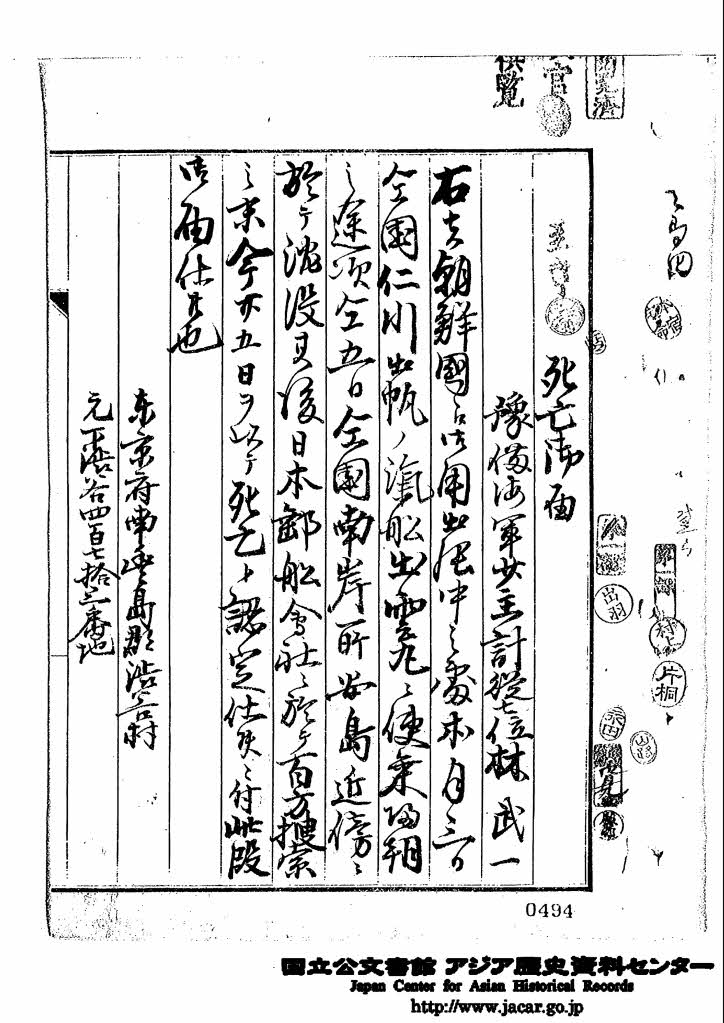 供覧
官
死亡御届
豫備海軍少主計從七位林武一
右者朝鮮國ニ御用出張中之處本月三日
仝國仁川出帆ノ滊船出雲丸ニ便乗帰朝
之途次仝五日仝國南岸所安島近傍ニ
於テ沈没其後日本郵船會社ニ於テ百方捜索
之末今廿五日ヲ以テ死亡ト認定仕候ニ付此段
御届仕候也
東京府南豊島郡渋谷村
元下渋谷四百七拾三番地
出羽
片桐
村上
山路
0494
国立公文書館 アジア歴史資料センター
Japan Center for Asian Historical Records
http://www.jacar.go.jp